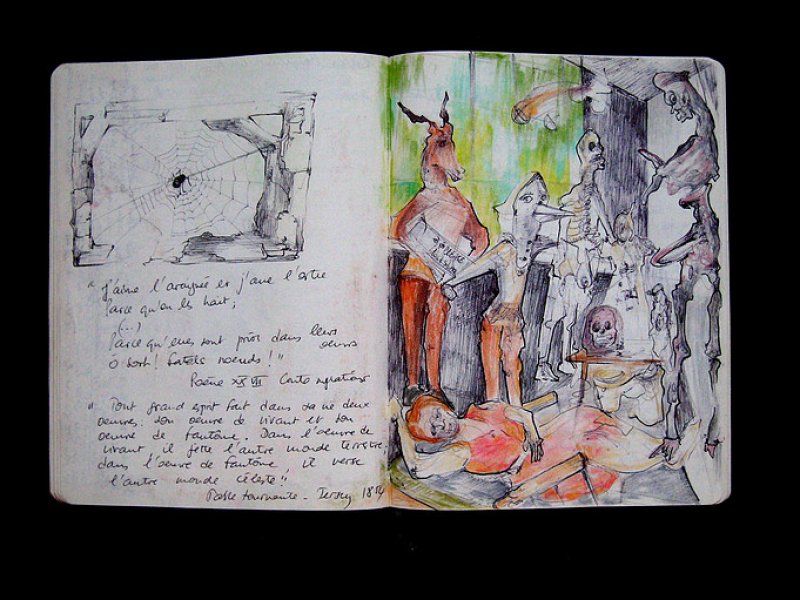 " j'aime l'araignée et j'aime l'ortie
Parce qu'on les hait;
(...)
Parce qu'elles sont prises dans leurs
oeuvres
ô sort! fatals noeuds!"
Poème XXVII Contemplations
" Tout grand esprit fait dans sa vie deux
oeuvres: son oeuvre de vivant et son
oeuvre de fantôme. Dans l'oeuvre de
vivant il jette l'autre monde terrestre
dans l'oeuvre de fantôme il verse
l'autre monde céleste!"
Table tournante - Jersey 1854